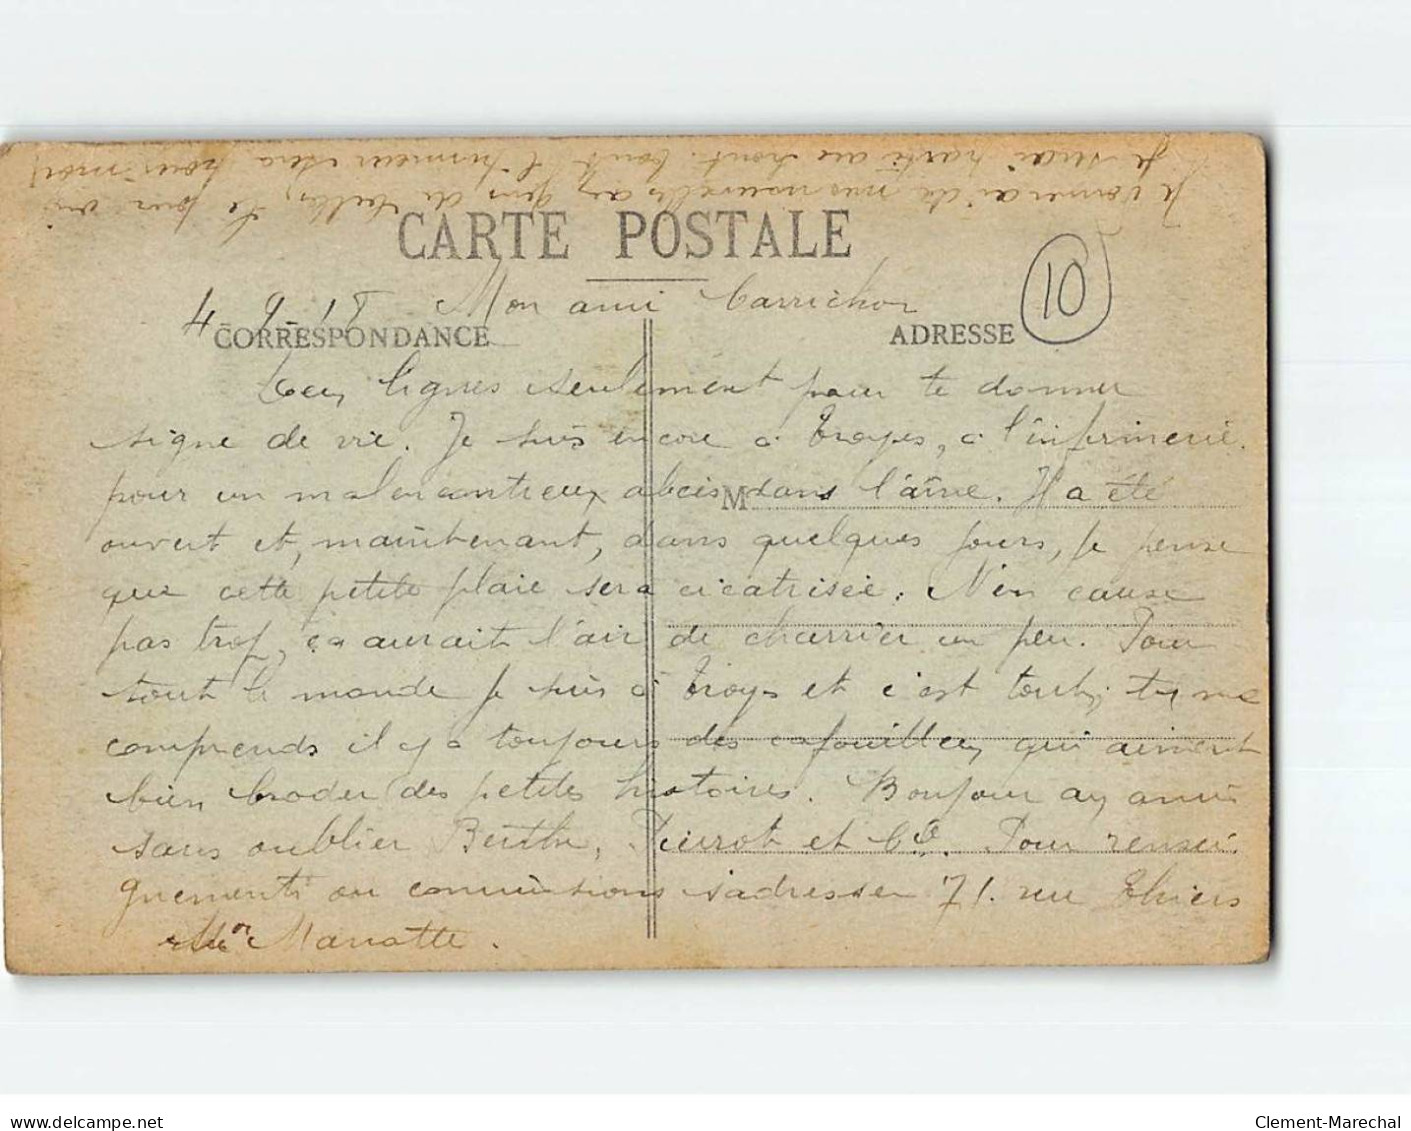 CARTE POSTALE
10
4-9-15 Mon ami Carrichon
CORRESPONDANCE
ADRESSE
M
Ces lignes seulement pour te donner
signe de vie. Je suis encore à Troyes, à l'infirmerie
pour un malencontreux abcès dans l'aîne. Il a été
ouvert et, maintenant, dans quelques jours, je pense
que cette petite plaie sera cicatrisée. N'en cause
pas trop, ça aurait l'air de charrier un peu. Pour
tout le monde je suis à Troyes et c'est tout; tu me
comprends il y a toujours des qui aiment
bien broder des petites histoires. Bonjour aux amis
sans oublier Berthe, Pierrot et Cie. Pour rensei-
gnements ou commissions s'adresser 71. rue Thiers
Mon Mariotte.
Je donnerai de mes nouvelles aux gens de le jour où
je serai parti au front. tout l'honneur sera pour moi!
Clement-Marechal
www.delcampe.net